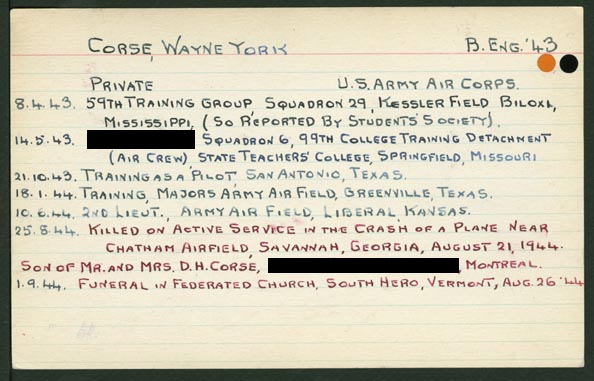 CORSE, WAYNE YORK B. ENG. '43
PRIVATE U.S. ARMY AIR CORPS.
8.4.43. 59TH TRAINING GROUP, SQUADRON 29, KESSLER FIELD BILOXI,
MISSISSIPPI, (SO REPORTED BY STUDENTS' SOCIETY).
14.5.43. SQUADRON 6, 99TH COLLEGE TRAINING DETACHMENT
(AIR CREW) STATE TEACHERS' COLLEGE, SPRINGFIELD, MISSOURI
21.10.43. TRAINING AS A PILOT SAN ANTONIO, TEXAS.
18.1.44. TRAINING, MAJORS ARMY AIR FIELD, GREENVILLE, TEXAS.
10.6.44. 2ND LIEUT., ARMY AIR FIELD, LIBERAL, KANSAS.
25.8.44. KILLED ON ACTIVE SERVICE IN THE CRASH OF A PLANE NEAR
CHATHAM AIRFIELD, SAVANNAH, GEORGIA, AUGUST 21, 1944.
SON OF MR. AND MRS. D.H. CORSE, , MONTREAL.
1.9.44. FUNERAL IN FEDERATED CHURCH, SOUTH HERO, VERMONT, AUG. 26 '44